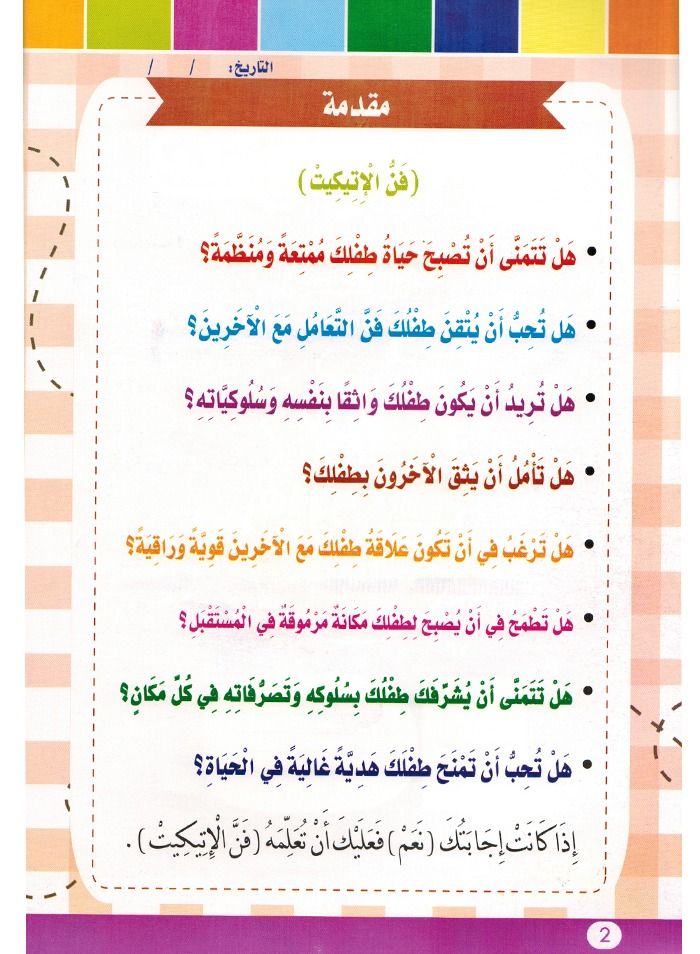 التاريخ: / /
مقدمة
(فَنُّ الْإِتِيكِيتْ)
• هَلْ تَتَمَنَّى أَنْ تُصْبِحَ حَيَاةُ طِفْلِكَ مُمْتِعَةً وَمُنَظَّمَةً؟
• هَل تُحِبُّ أَنْ يُتْقِنَ طِفْلُكَ فَنَّ التَّعَامُلِ مَعَ الْآخَرِينَ؟
• هَلْ تُرِيدُ أَنْ يَكُونَ طِفْلُكَ وَاثِقًا بِنَفْسِهِ وَسُلُوكِيَّاتِهِ؟
• هَلْ تَأْمُلُ أَنْ يَثِقَ الْآخَرُونَ بِطِفْلِكَ؟
• هَلْ تَرْغَبُ فِي أَنْ تَكُونَ عَلَاقَةُ طِفْلِكَ مَعَ الْآخَرِينَ قَوِيَّةً وَرَاقِيَةً؟
• هَلْ تَطْمَحُ فِي أَنْ يُصْبِحَ لِطِفْلِكَ مَكَانَةٌ مَرْمُوقَةٌ فِي الْمُسْتَقْبَلِ؟
• هَلْ تَتَمَنَّى أَنْ يُشَرِّفَكَ طِفْلُكَ بِسُلُوكِهِ وَتَصَرُّفَاتِهِ فِي كُلِّ مَكَانٍ؟
• هَلْ تُحِبُّ أَنْ تَمْنَحَ طِفْلَكَ هَدِيَّةً غَالِيَةً فِي الْحَيَاةِ؟
إِذَا كَانَتْ إِجَابَتُكَ (نَعَمْ) فَعَلَيْكَ أَنْ تُعَلِّمَهُ (فَنَّ الْإِتِيكِيتْ).
2